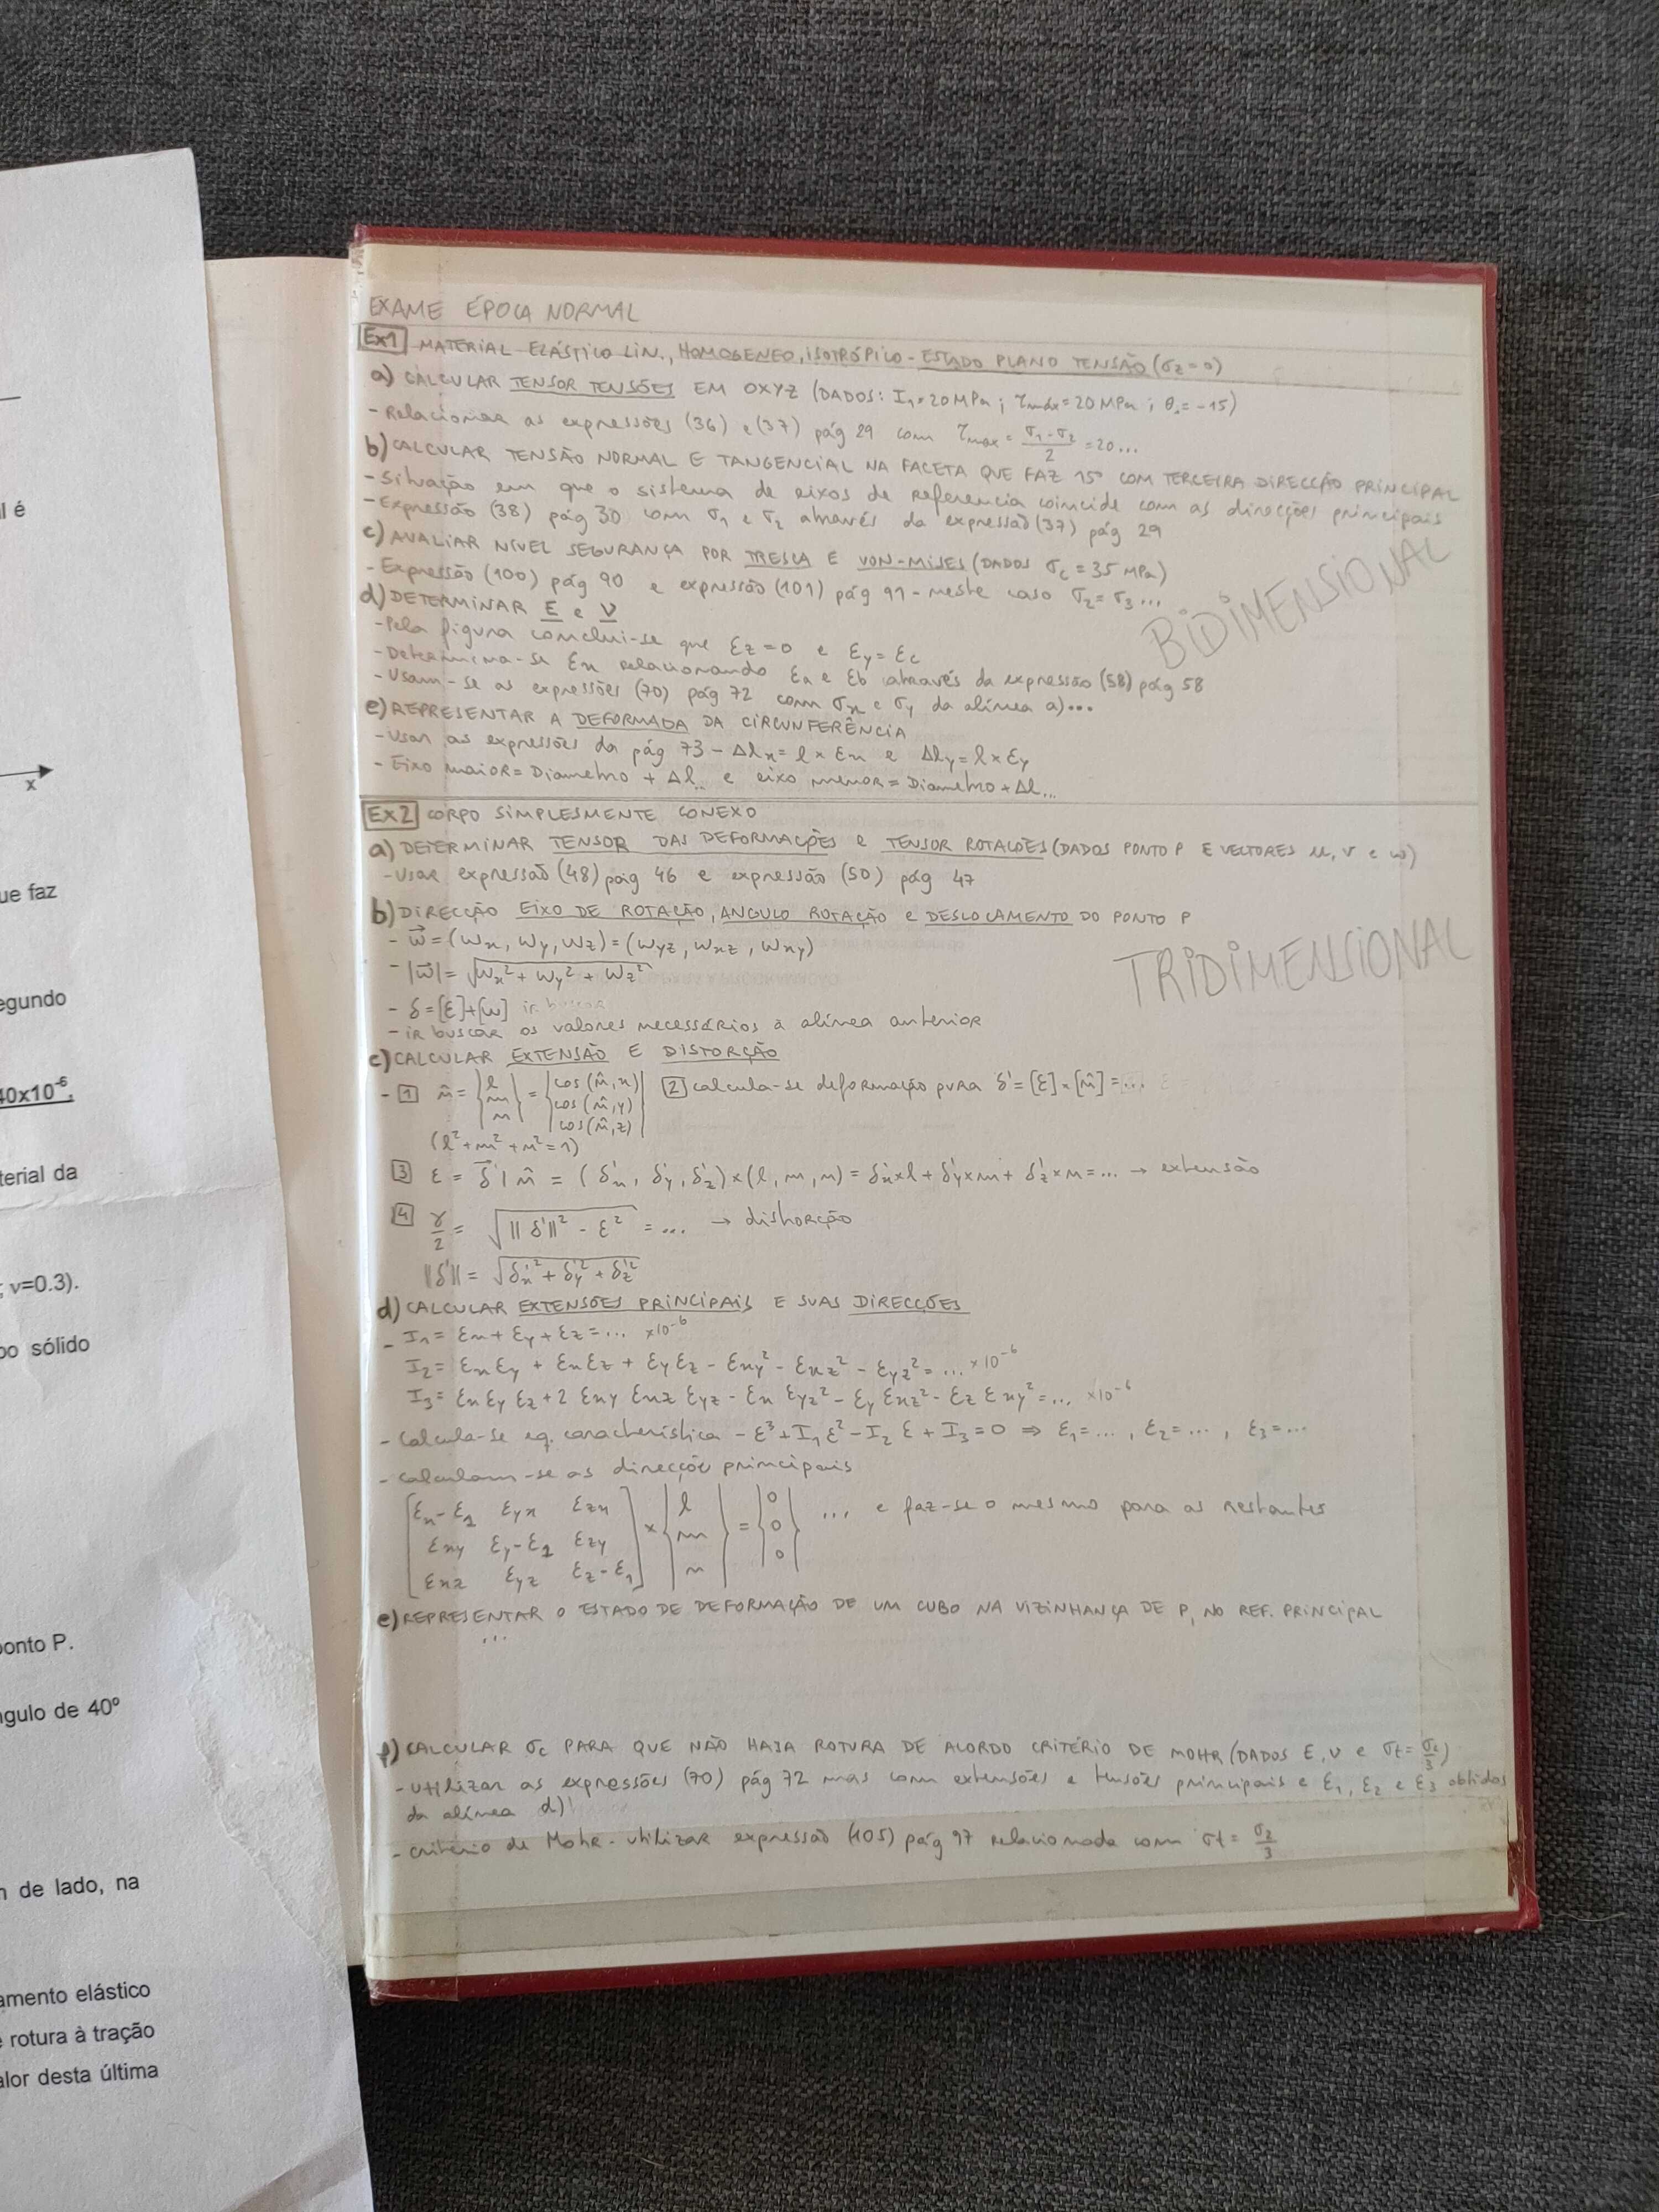 l é
x
ue faz
egundo
40x10⁻⁶.
terial da
; ν=0.3).
po sólido
ponto P.
ngulo de 40º
n de lado, na
amento elástico
e rotura à tração
alor desta última
EXAME ÉPOCA NORMAL
Ex1 MATERIAL ELÁSTICO LIN., HOMOGENEO, ISOTRÓPICO - ESTADO PLANO TENSÃO (σz=0)
a) CALCULAR TENSOR TENSÕES EM OXYZ (DADOS: I₁=20MPa ; τmáx=20MPa ; θ = -15)
- Relacionar as expressões (36) e (37) pág 29 com τmax = (σ₁-σ₂)/2 = 20...
b) CALCULAR TENSÃO NORMAL E TANGENCIAL NA FACETA QUE FAZ 15º COM TERCEIRA DIRECÇÃO PRINCIPAL
- Situação em que o sistema de eixos de referencia coincide com as direcções principais
- Expressão (38) pág 30 com σ₁ e σ₂ através da expressão (37) pág 29
c) AVALIAR NÍVEL SEGURANÇA POR TRESCA E VON-MISES (DADOS σc = 35 MPa)
- Expressão (100) pág 90 e expressão (101) pág 91 - neste caso σ₂ = σ₃ ...
d) DETERMINAR E e ν
- Pela figura conclui-se que εz = 0 e εy = εc
- Determina-se εx relacionando εa e εb através da expressão (58) pág 58
- Usam-se as expressões (70) pág 72 com σx e σy da alínea a)...
BIDIMENSIONAL
e) REPRESENTAR A DEFORMADA DA CIRCUNFERÊNCIA
- Usar as expressões da pág 73 - Δlx = l × εx e Δly = l × εy
- Eixo maior = Diametro + Δl... e eixo menor = Diametro + Δl...
Ex2 CORPO SIMPLESMENTE CONEXO
a) DETERMINAR TENSOR DAS DEFORMAÇÕES e TENSOR ROTAÇÕES (DADOS PONTO P E VECTORES u, v e w)
- Usar expressão (48) pág 46 e expressão (50) pág 47
b) DIRECÇÃO EIXO DE ROTAÇÃO, ANGULO ROTAÇÃO e DESLOCAMENTO DO PONTO P
- w⃗ = (wx, wy, wz) = (wyz, wxz, wxy)
- |w⃗| = √(wx² + wy² + wz²)
TRIDIMENSIONAL
- δ = [ε]+[w] ir buscar
- ir buscar os valores necessários à alínea anterior
c) CALCULAR EXTENSÃO E DISTORÇÃO
- 1 n̂ = {l m n} = |cos(n̂,x) cos(n̂,y) cos(n̂,z)| 2 calcula-se deformação pura δ' = [ε] × [n̂] = ...
(l² + m² + n² = 1)
3 ε = δ⃗' | n̂ = (δ'x, δ'y, δ'z) × (l, m, n) = δ'x×l + δ'y×m + δ'z×n = ... → extensão
4 γ/2 = √(||δ'||² - ε²) = ... → distorção
||δ'|| = √(δ'x² + δ'y² + δ'z²)
d) CALCULAR EXTENSÕES PRINCIPAIS E SUAS DIRECÇÕES
- I₁ = εx + εy + εz = ... ×10⁻⁶
I₂ = εxεy + εxεz + εyεz - εxy² - εxz² - εyz² = ... ×10⁻⁶
I₃ = εxεyεz + 2 εxy εxz εyz - εx εyz² - εy εxz² - εz εxy² = ... ×10⁻⁶
- Calcula-se eq. característica - ε³ + I₁ε² - I₂ε + I₃ = 0 ⇒ ε₁ = ... , ε₂ = ... , ε₃ = ...
- calculam-se as direcções principais
[εx-ε₁ εyx εzx] {l} {0} ... e faz-se o mesmo para as restantes
[εxy εy-ε₁ εzy] × {m} = {0}
[εxz εyz εz-ε₁] {n} {0}
e) REPRESENTAR O ESTADO DE DEFORMAÇÃO DE UM CUBO NA VIZINHANÇA DE P, NO REF. PRINCIPAL
...
f) CALCULAR σc PARA QUE NÃO HAJA ROTURA DE ACORDO CRITÉRIO DE MOHR (DADOS E, ν e σt = σc/3)
- Utilizar as expressões (70) pág 72 mas com extensões e tensões principais e ε₁, ε₂ e ε₃ obtidos
da alínea d)
- critério de Mohr - utilizar expressão (105) pág 97 relacionada com σt = σ₂/3